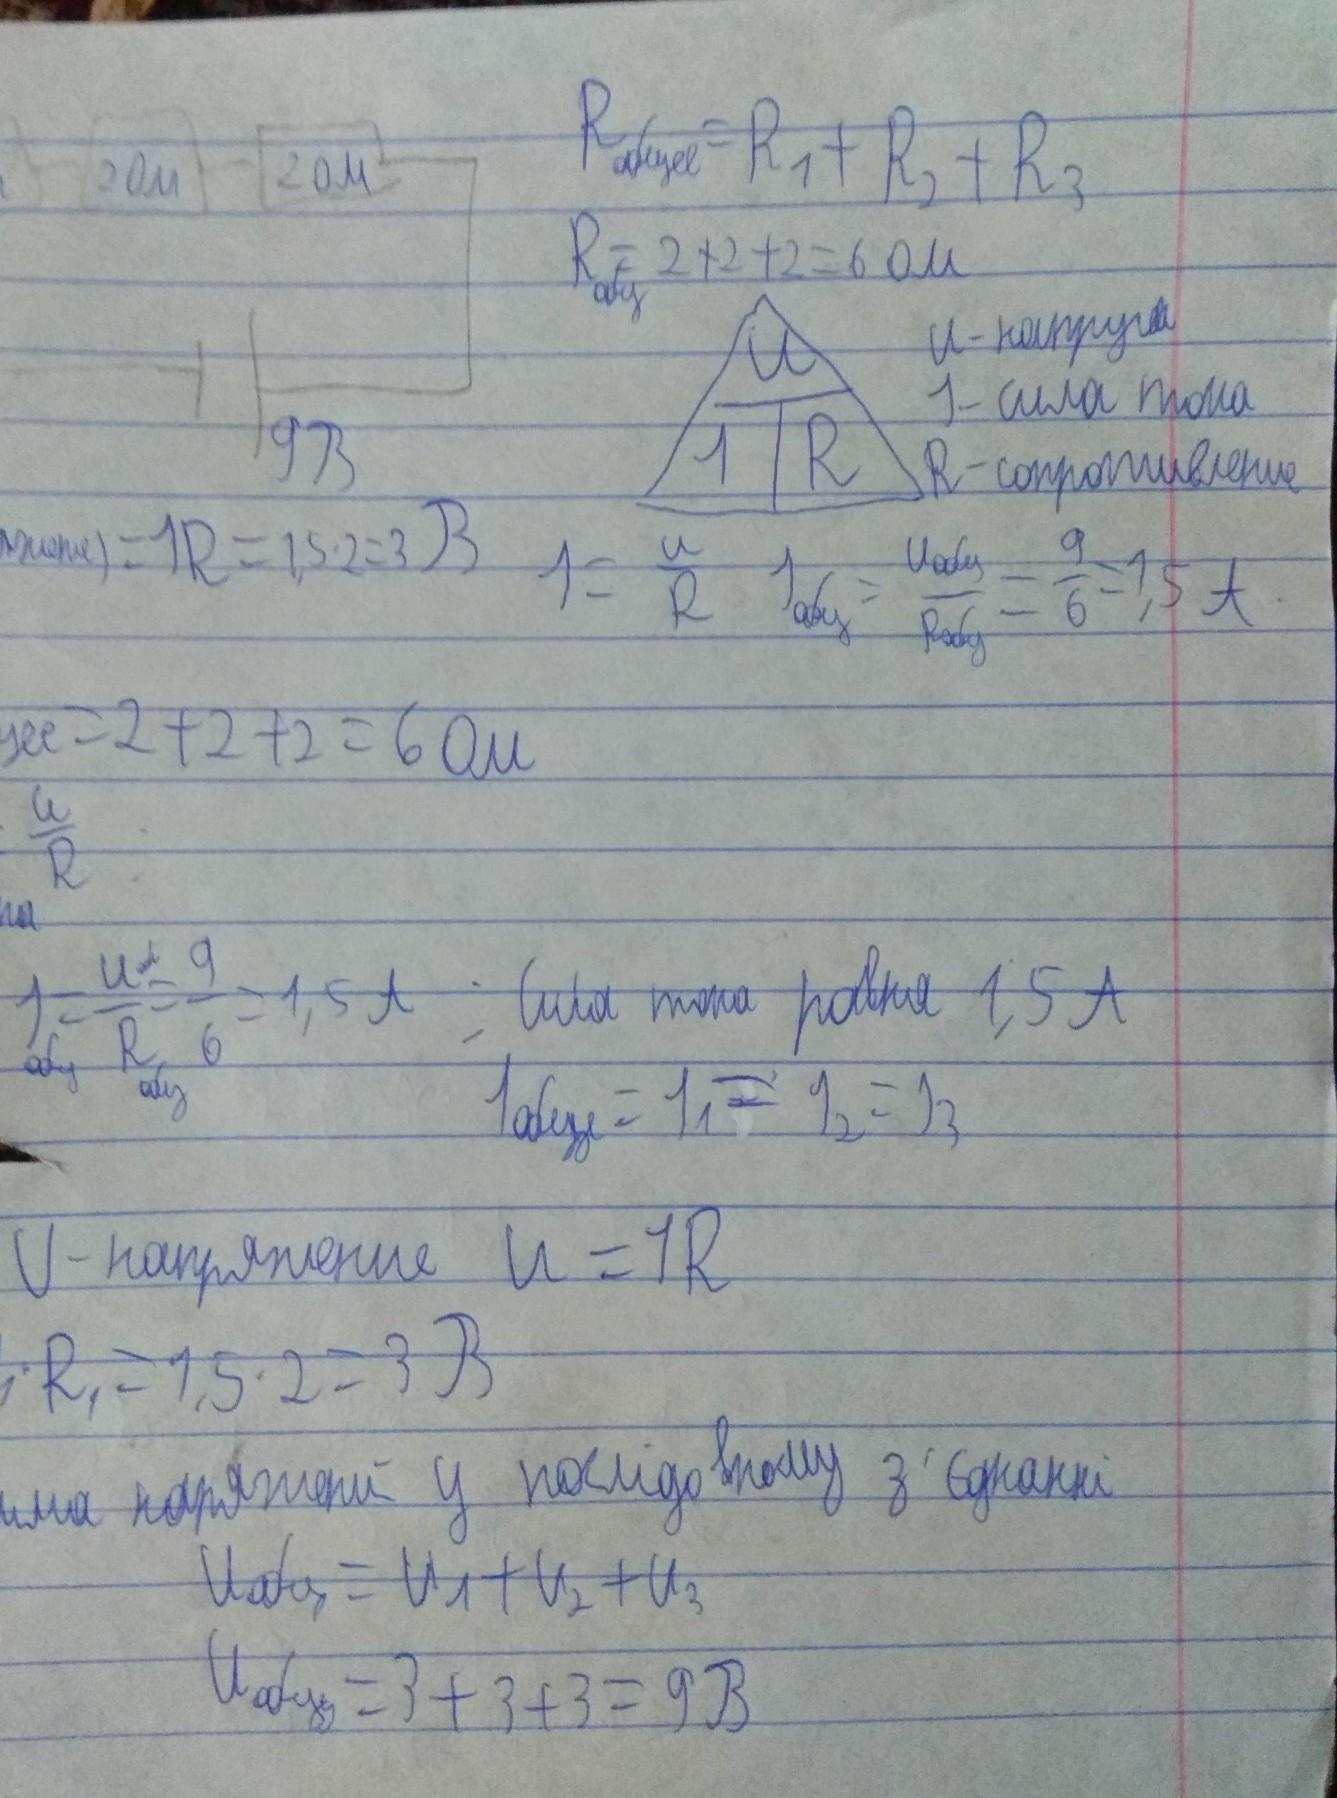 R общее = R1 + R2 + R3
2 ОМ 2 ОМ
R общ = 2+2+2=6 ОМ
U
1 R
U - напруга
1 - сила тока
R - сопротивление
9В
=1R=1,5·2=3 В
1 = U/R 1 общ = U общ/R общ = 9/6 = 1,5 А
щее = 2+2+2=6 Ом
U/R
1 общ = U/R общ = 9/6 = 1,5 А ; Сила тока равна 1,5 А
1 общее = 11 = 12 = 13
U - напряжение U = 1R
· R1 = 1,5 · 2 = 3 В
напряжений у послідовному з'єднанні
U общ = U1 + U2 + U3
U общ = 3 + 3 + 3 = 9В